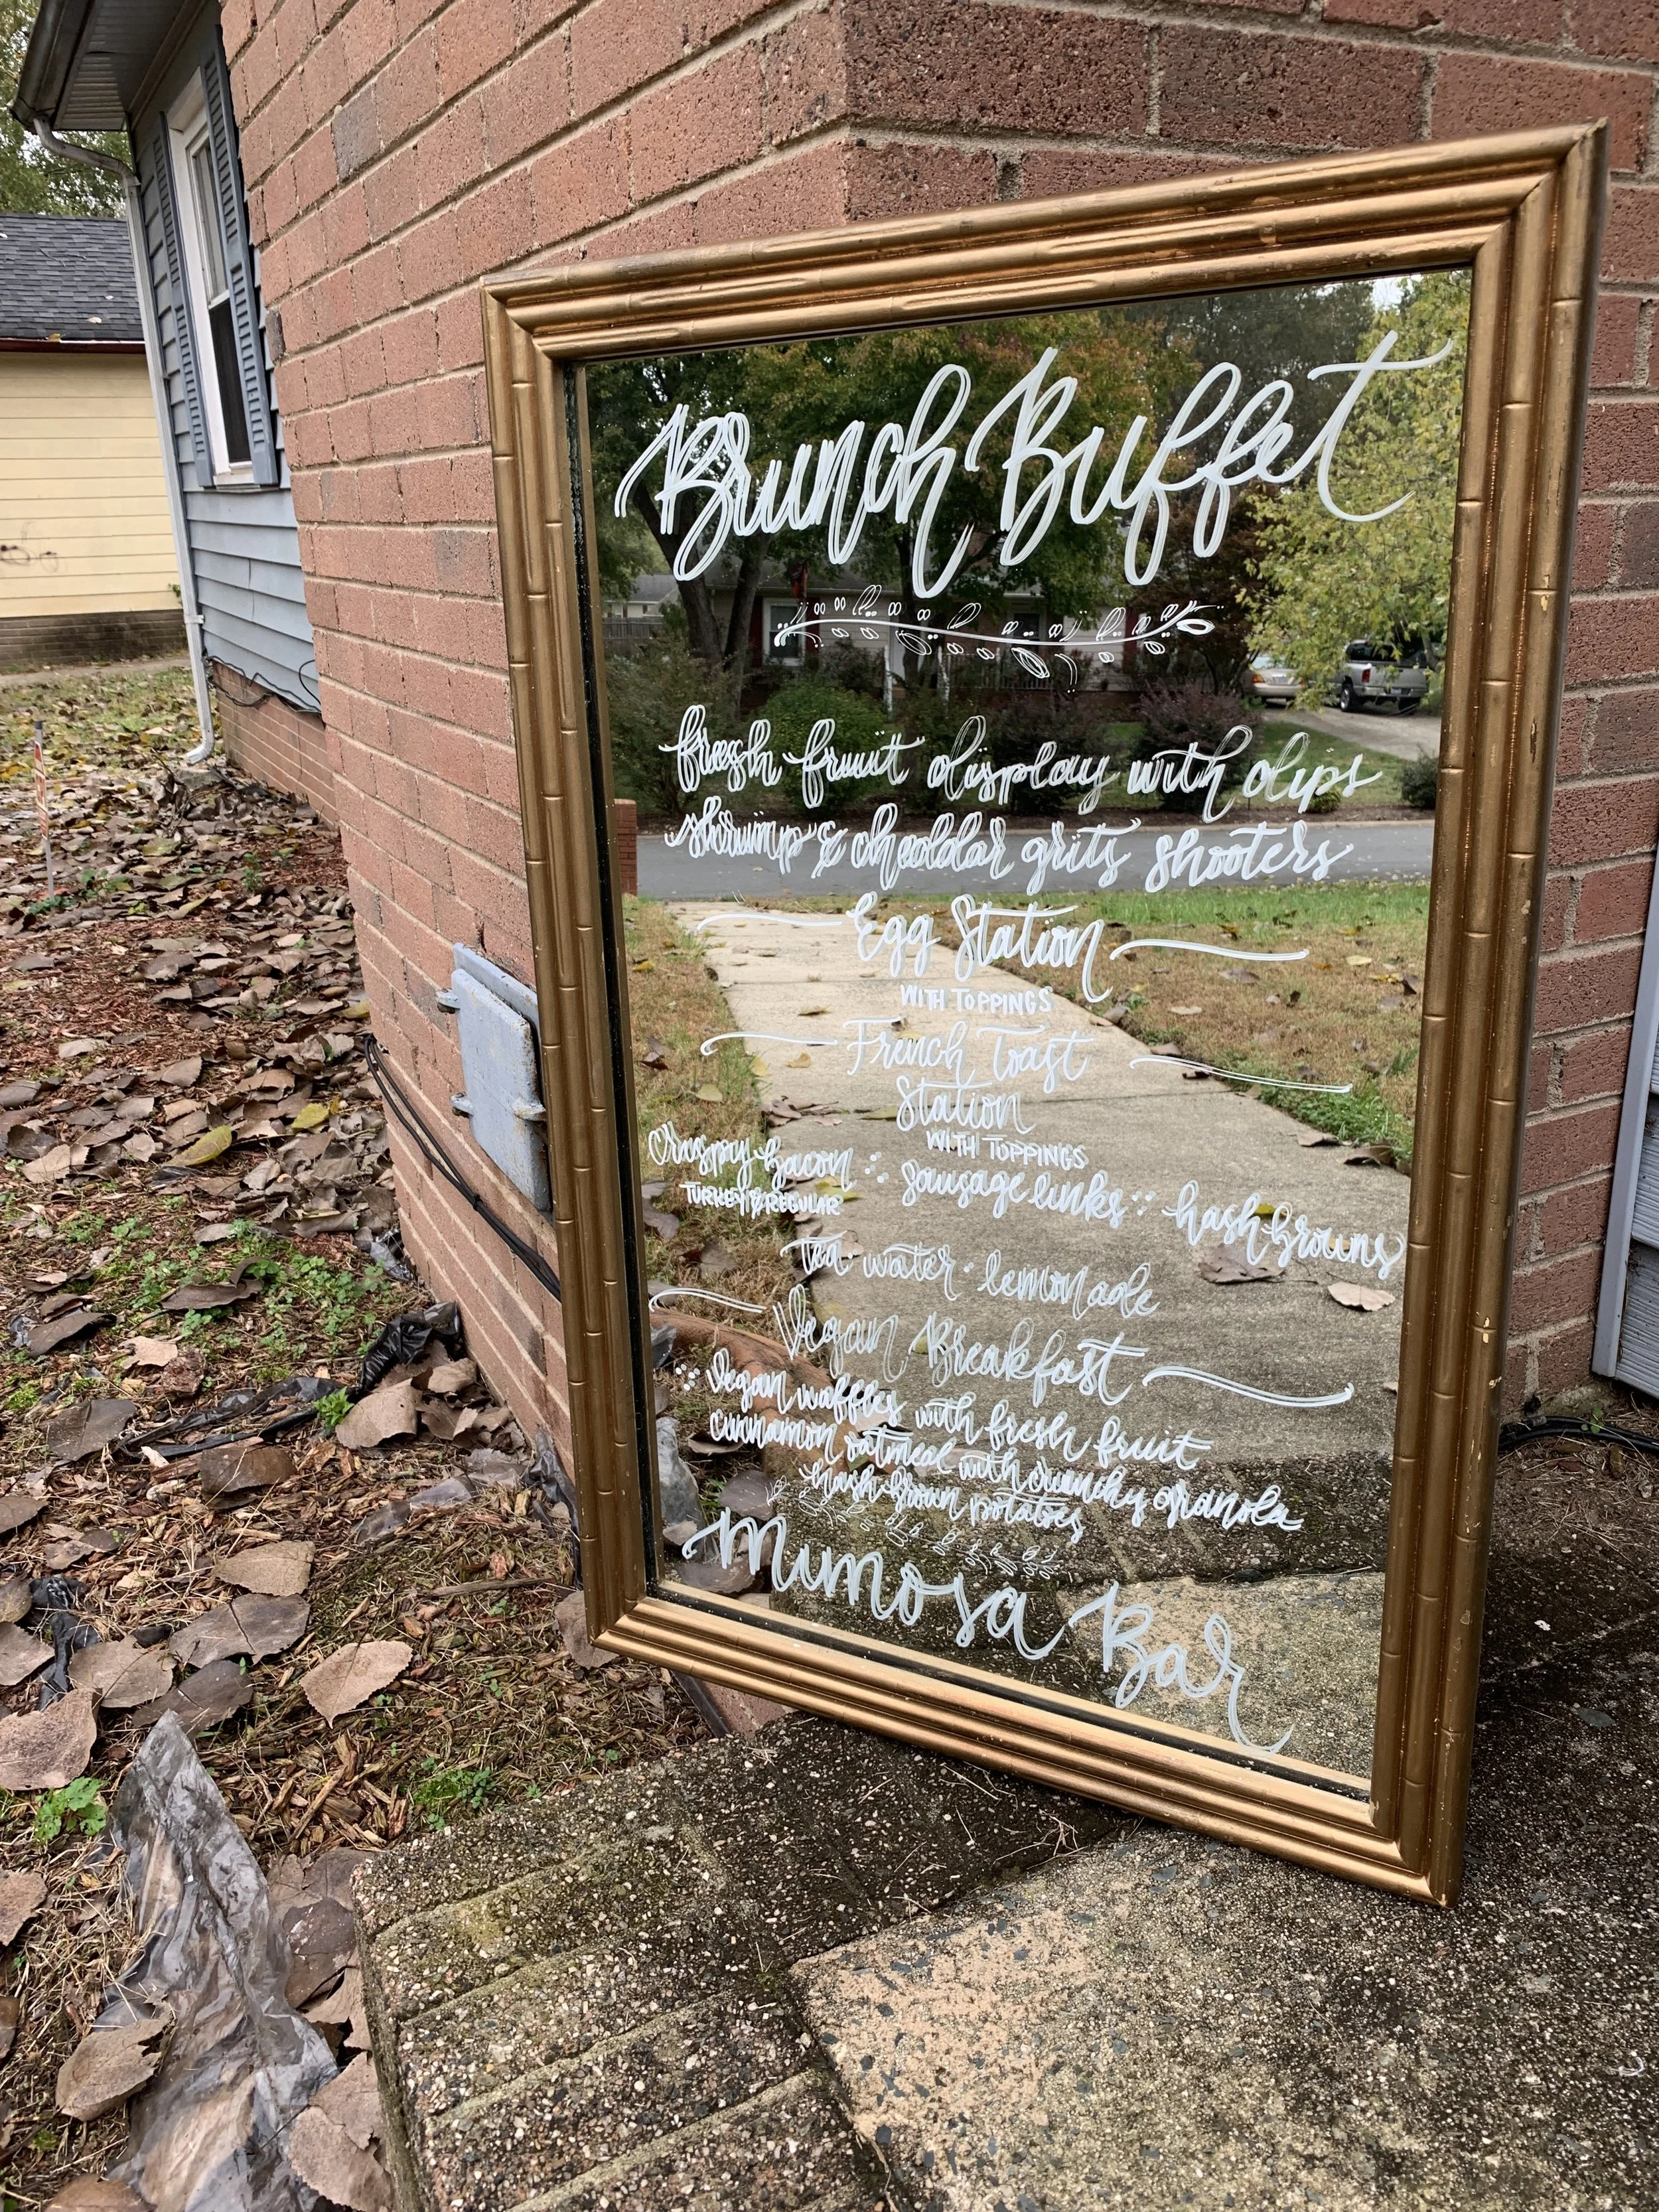 Brunch Buffet
fresh fruit display with dips
shrimp & cheddar grits shooters
Egg Station
WITH TOPPINGS
French Toast
Station
WITH TOPPINGS
crispy bacon :: sausage links :: hashbrowns
TURKEY & REGULAR
tea water · lemonade
Vegan Breakfast
:: vegan waffles with fresh fruit
cinnamon oatmeal with crunchy granola
hash brown potatoes
Mimosa Bar